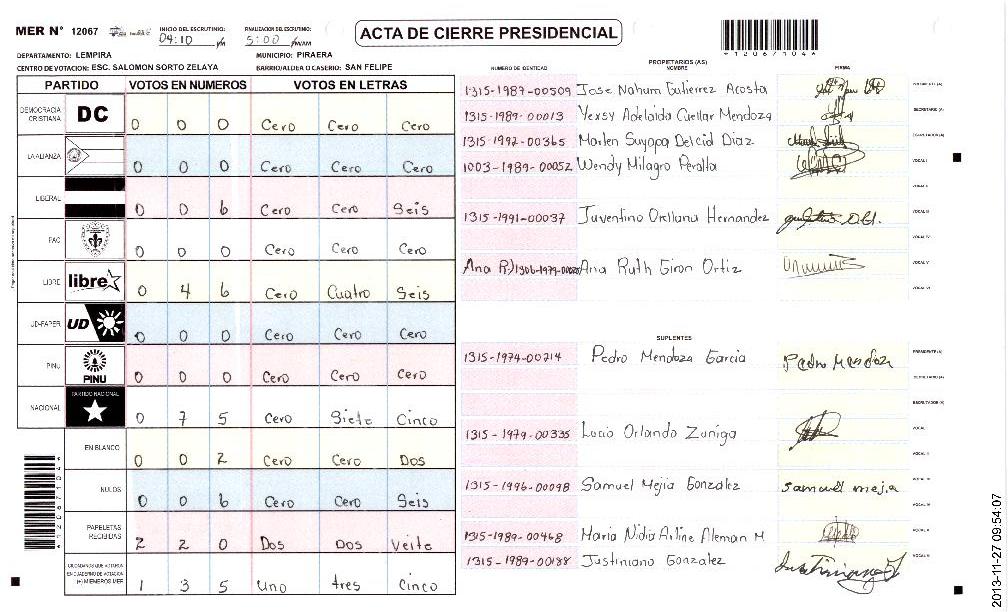 MER N° 12067
INICIO DEL ESCRUTINIO:
04:10 PM
FINALIZACION DEL ESCRUTINIO:
5:00 PM/AM
ACTA DE CIERRE PRESIDENCIAL
DEPARTAMENTO: LEMPIRA
MUNICIPIO: PIRAERA
CENTRO DE VOTACION: ESC. SALOMON SORTO ZELAYA
BARRIO/ALDEA O CASERIO: SAN FELIPE
PARTIDO VOTOS EN NUMEROS VOTOS EN LETRAS
DEMOCRACIA CRISTIANA DC 0 0 0 Cero Cero Cero
LA ALIANZA 0 0 0 Cero Cero Cero
LIBERAL 0 0 6 Cero Cero Seis
PAC 0 0 0 Cero Cero Cero
LIBRE libre 0 4 6 Cero Cuatro Seis
UD-FAPER UD 0 0 0 Cero Cero Cero
PINU PINU 0 0 0 Cero Cero Cero
NACIONAL PARTIDO NACIONAL 0 7 5 Cero Siete Cinco
EN BLANCO 0 0 2 Cero Cero Dos
NULOS 0 0 6 Cero Cero Seis
PAPELETAS RECIBIDAS 2 2 0 Dos Dos Veite
CIUDADANOS QUE VOTARON EN CUADERNO DE VOTACION (+) MIEMBROS MER 1 3 5 Uno tres Cinco
*12067104*
NUMERO DE IDENTIDAD
PROPIETARIOS (AS)
NOMBRE
FIRMA
1315-1989-00509 Jose Nahum Gutierrez Acosta PRESIDENTE (A)
1315-1989-00013 Yexsy Adelaida Cuellar Mendoza SECRETARIO (A)
1315-1992-00365 Marlen Suyapa Delcid Diaz ESCRUTADOR (A)
1003-1989-00052 Wendy Milagro Peralta VOCAL I
VOCAL II
1315-1991-00037 Juventino Orellana Hernandez VOCAL III
VOCAL IV
Ana R) Ana Ruth Giron Ortiz VOCAL V
VOCAL VI
SUPLENTES
1315-1974-00214 Pedro Mendoza Garcia Pedro Mendoza PRESIDENTE (A)
SECRETARIO (A)
ESCRUTADOR (A)
1315-1979-00335 Lucio Orlando Zuniga VOCAL
VOCAL II
1315-1996-00098 Samuel Mejia Gonzalez samuell mejia VOCAL III
VOCAL IV
1315-1989-00468 Maria Nidia Arline Aleman M VOCAL V
1315-1989-00188 Justiniano Gonzalez VOCAL VI
2013-11-27 09:54:07